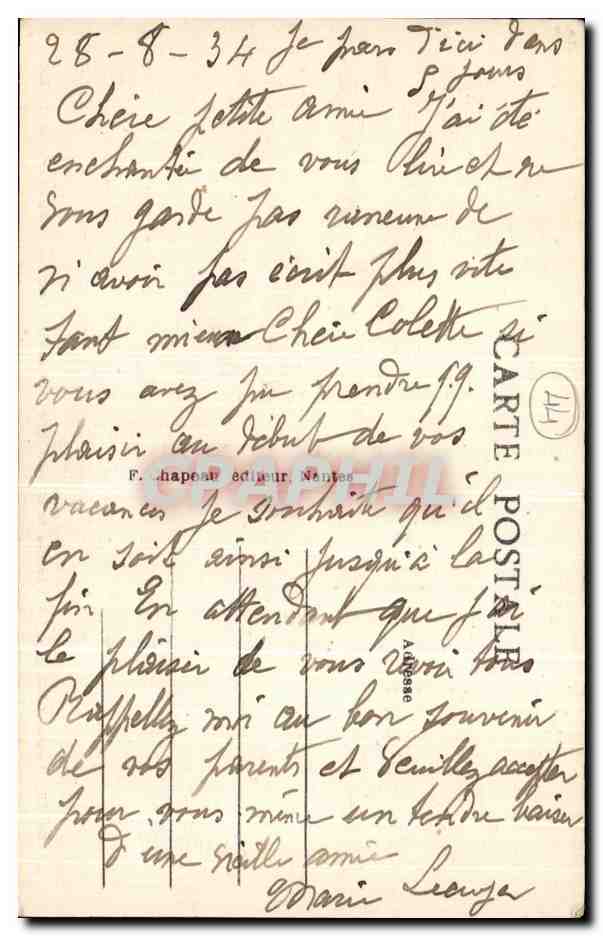 28-8-34 Je pars d'ici dans
8 jours
Chère petite amie J'ai été
enchantée de vous lire et ne
vous garde pas rancune de
n'avoir pas écrit plus vite
tant mieux Chère Colette si
vous avez pu prendre
plaisir au début de vos
F. Chapeau éditeur, Nantes
vacances Je souhaite qu'il
en soit ainsi jusqu'à la
fin En attendant que j'ai
le plaisir de vous revoir tous
Rappellez moi au bon souvenir
de vos parents et Veuillez accepter
pour vous même un tendre baiser
d'une vieille amie
Marie
CARTE POSTALE
Adresse
44
CPAPHIL